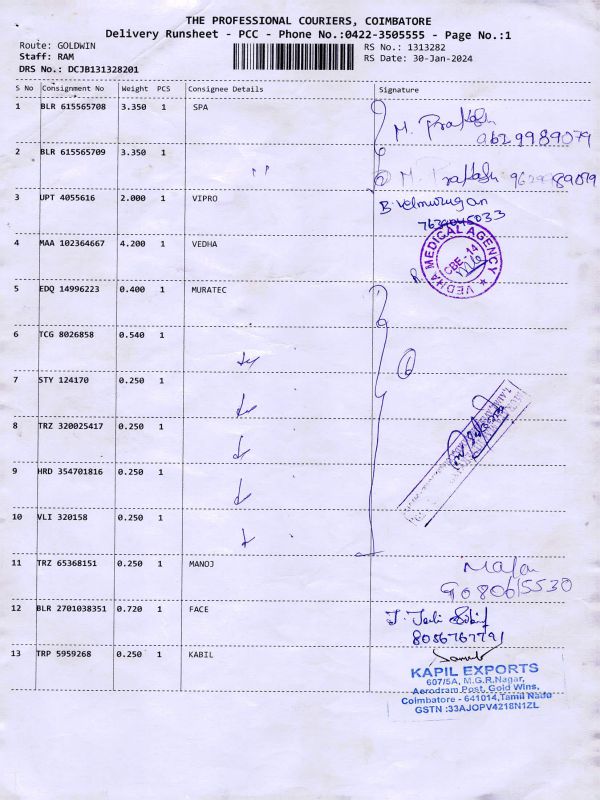 THE PROFESSIONAL COURIERS, COIMBATORE
Delivery Runsheet - PCC - Phone No.:0422-3505555 - Page No.:1
Route: GOLDWIN
RS No.: 1313282
Staff: RAM
RS Date: 30-Jan-2024
DRS No.: DCJB131328201
S No Consignment No Weight PCS Consignee Details Signature
1 BLR 615565708 3.350 1 SPA
M. Prakash
9629989079
2 BLR 615565709 3.350 1 " M. Prakash 9629989079
3 UPT 4055616 2.000 1 VIPRO B. Velmurugan
7639045033
4 MAA 102364667 4.200 1 VEDHA
VEDHA MEDICAL AGENCY
CBE - 14
5 EDQ 14996223 0.400 1 MURATEC
6 TCG 8026858 0.540 1
7 STY 124170 0.250 1
8 TRZ 320025417 0.250 1
9 HRD 354701816 0.250 1
10 VLI 320158 0.250 1
11 TRZ 65368151 0.250 1 MANOJ
9080615530
12 BLR 2701038351 0.720 1 FACE
8056767791
13 TRP 5959268 0.250 1 KABIL
KAPIL EXPORTS
607/5A, M.G.R.Nagar,
Aerodram Post, Gold Wins,
Coimbatore - 641014,Tamil Nadu
GSTN :33AJOPV4218N1ZL